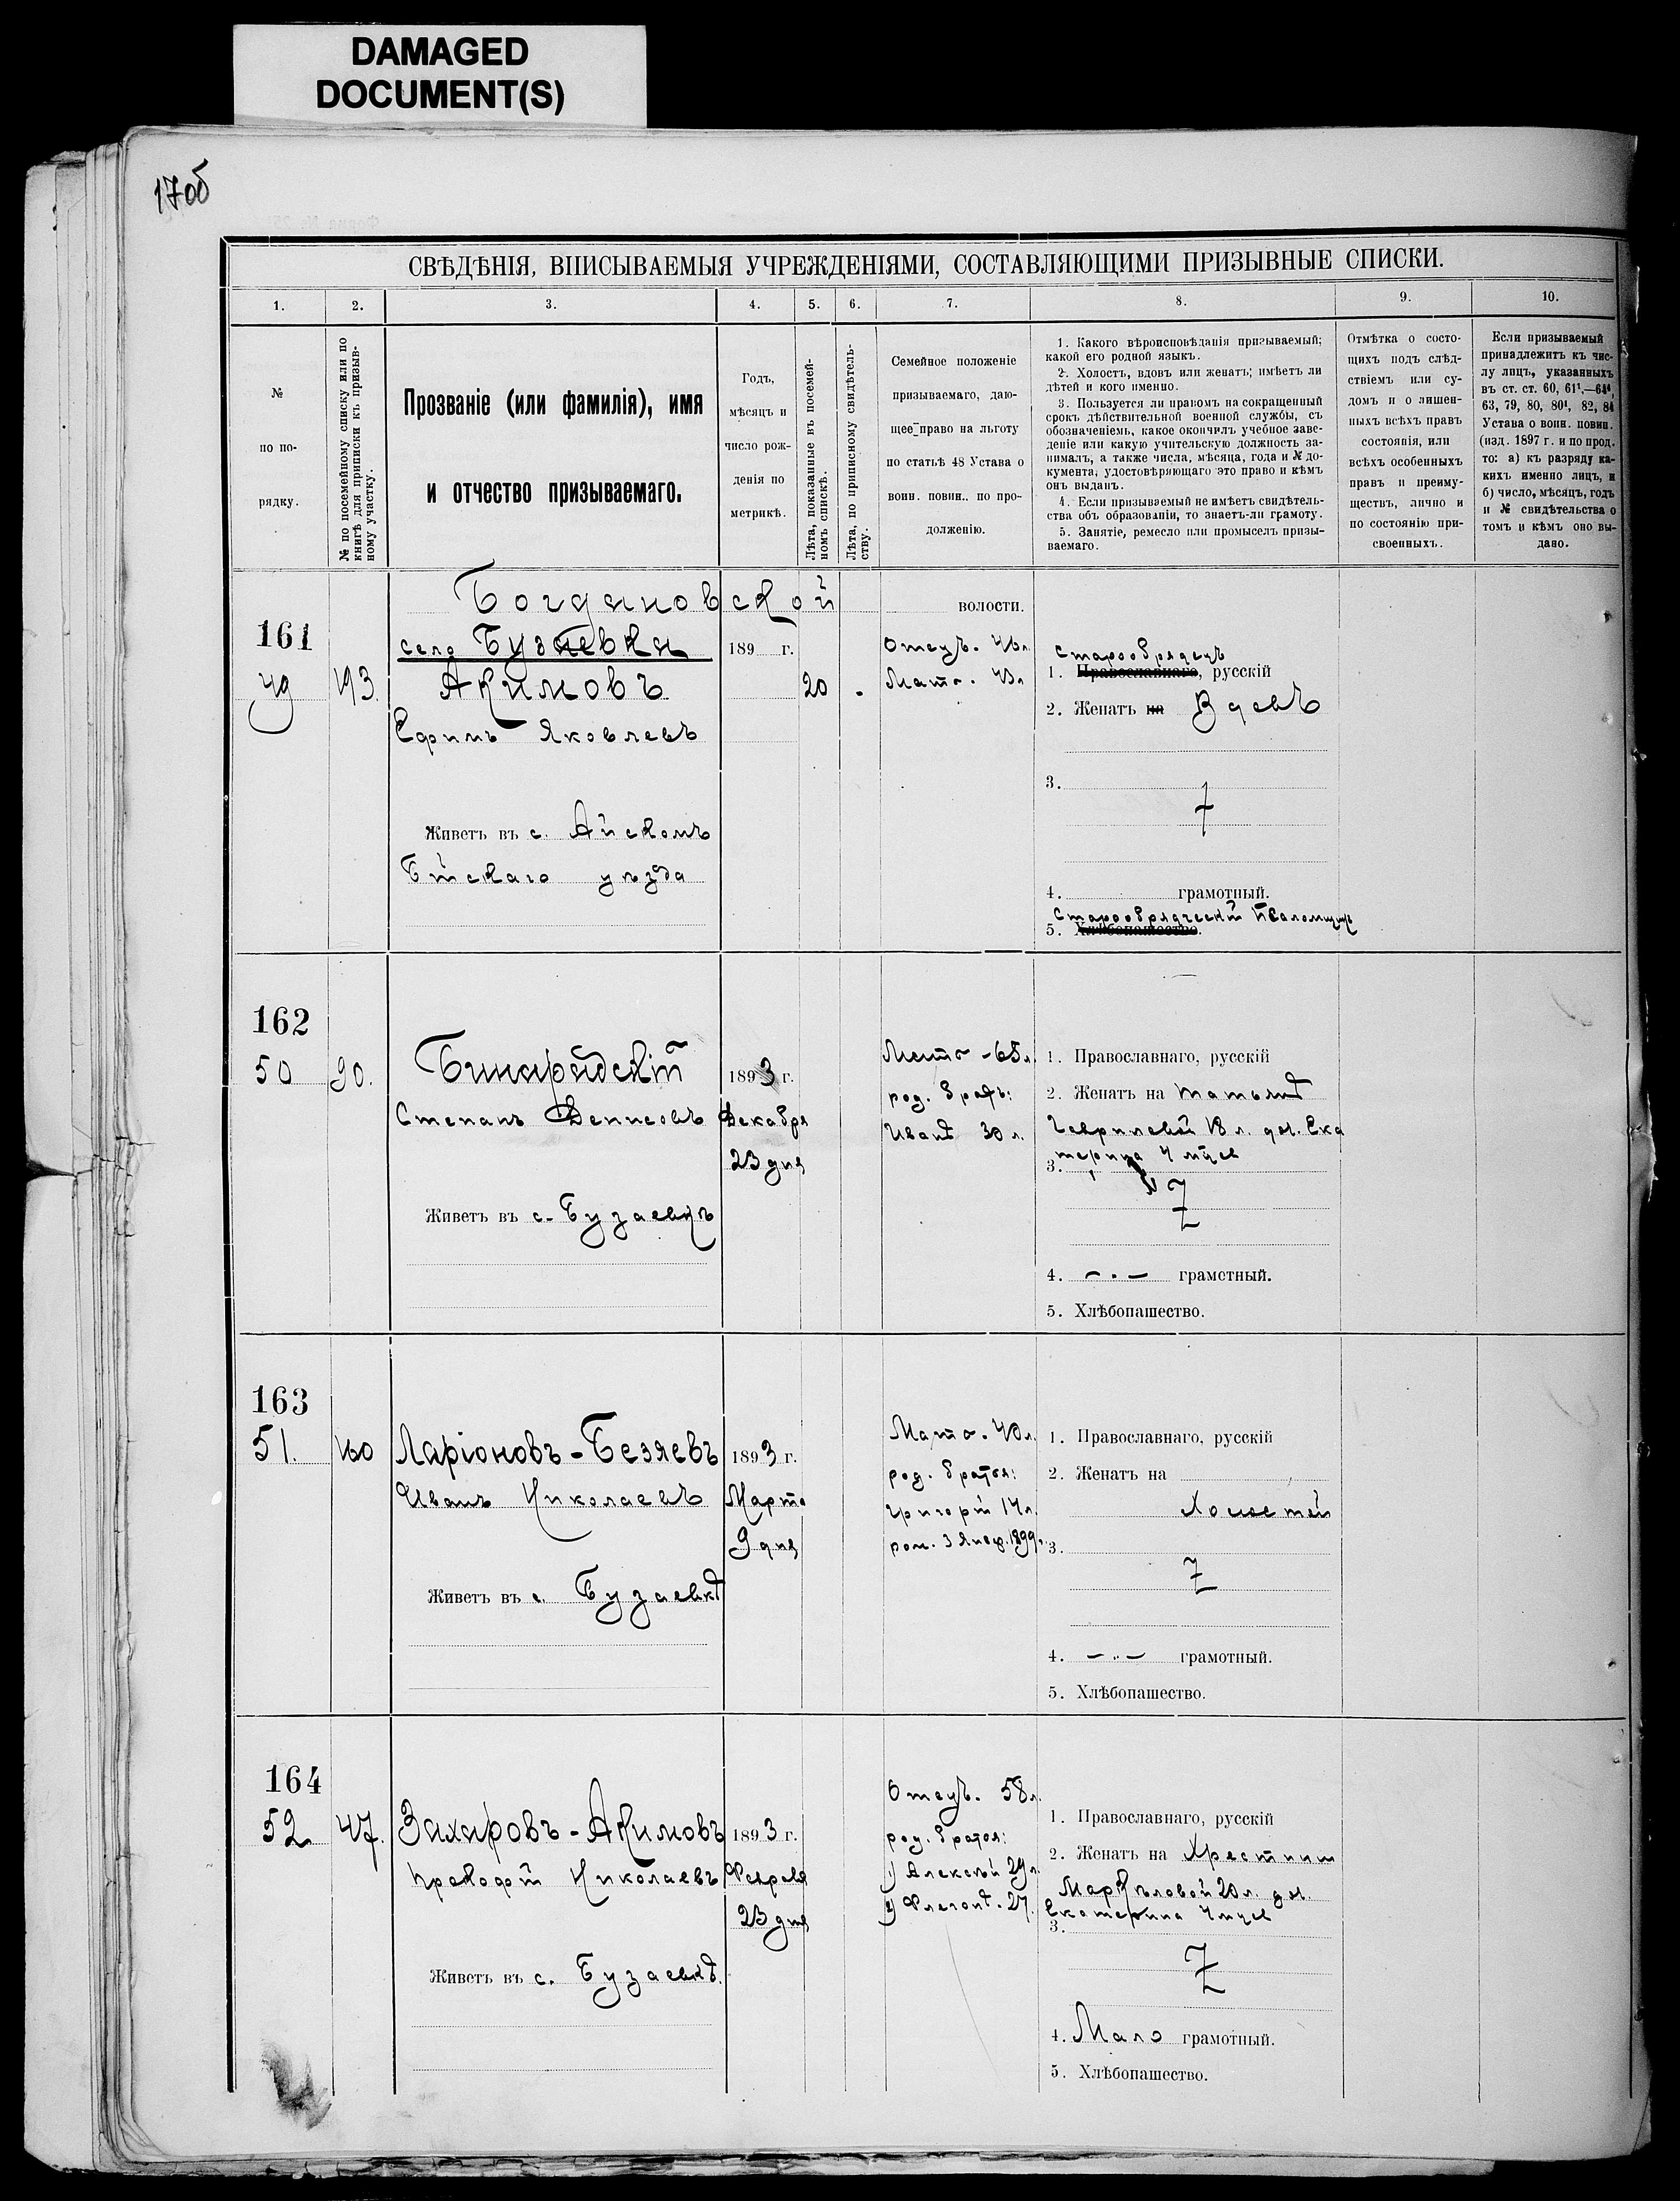 DAMAGED
DOCUMENT(S)
170б
СВѢДѢНІЯ, ВПИСЫВАЕМЫЯ УЧРЕЖДЕНІЯМИ, СОСТАВЛЯЮЩИМИ ПРИЗЫВНЫЕ СПИСКИ.
1. 2. 3. 4. 5. 6. 7. 8. 9. 10.
№
по по-
рядку.
№ по посемейному списку или по
книгѣ для приписки къ призыв-
ному участку.
Прозваніе (или фамилія), имя
и отчество призываемаго.
Годъ,
мѣсяцъ и
число рож-
денія по
метрикѣ.
Лѣта, показанные въ посемей-
номъ спискѣ.
Лѣта, по приписному свидѣтель-
ству.
Семейное положеніе
призываемаго, даю-
щее право на льготу
по статьѣ 48 Устава о
воин. повин., по про-
долженію.
1. Какого вѣроисповѣданія призываемый;
какой его родной языкъ.
2. Холостъ, вдовъ или женатъ; имѣетъ ли
дѣтей и кого именно.
3. Пользуется ли правомъ на сокращенный
срокъ дѣйствительной военной службы, съ
обозначеніемъ, какое окончилъ учебное заве-
деніе или какую учительскую должность за-
нималъ, а также числа, мѣсяца, года и № до-
кумента, удостовѣряющаго это право и кѣмъ
онъ выданъ.
4. Если призываемый не имѣетъ свидѣтель-
ства объ образованіи, то знаетъ-ли грамоту.
5. Занятіе, ремесло или промыселъ призы-
ваемаго.
Отмѣтка о состо-
щихъ подъ слѣд-
ствіемъ или су-
домъ и о лишен-
ныхъ всѣхъ правъ
состоянія, или
всѣхъ особенныхъ
правъ и преиму-
ществъ, лично и
по состоянію при-
своенныхъ.
Если призываемый
принадлежитъ къ чис-
лу лицъ, указанныхъ
въ ст. ст. 60, 61¹,—64⁴,
63, 79, 80, 80¹, 82, 84
Устава о воин. повин.
(изд. 1897 г. и по прод.
то: а) къ разряду ка-
кихъ именно лицъ, и
б) число, мѣсяцъ, годъ
и № свидѣтельства о
томъ и кѣмъ оно вы-
дано.
Богдановской волости.
161
49
193.
село Бузаевки
Акимовъ
Ефимъ Яковлевъ
Живетъ въ с. Айскомъ
Бійскаго уѣзда
189 г.
20
Отецъ.
Мать.
Старообрядецъ
1. Православнаго, русскій
2. Женатъ на Вдовъ
3.
4. грамотный.
Старообрядческій Псаломщикъ
5. Хлѣбопашество.
162
50
90.
Степанъ Денисовъ
Живетъ въ с. Бузаевкѣ
1893 г.
Декабря
23 дня
Мать - 65 л.
род. братъ:
Иванъ 30 л.
1. Православнаго, русскій
2. Женатъ на Татьянѣ
Гавриловой 18 л. доч. Ека
терина 4 мѣсе
3.
4. грамотный.
5. Хлѣбопашество.
163
51.
160
Ларіоновъ - Безяевъ
Иванъ Николаевъ
Живетъ въ с. Бузаевкѣ
1893 г.
Марта
9 дня
Мать. 40 л.
род. братья:
Григорій 14 л.
род. 3 Янвр. 1899 г.
1. Православнаго, русскій
2. Женатъ на
Холостой
3.
4. грамотный.
5. Хлѣбопашество.
164
52
47.
Захаровъ - Акимовъ
Николаевъ
Живетъ въ с. Бузаевкѣ.
1893 г.
Февраля
23 дня
Отецъ. 58 л.
род. братья:
1) Алексѣй 29 л.
2) Флегонтъ. 27.
1. Православнаго, русскій
2. Женатъ на Христинѣ
Маркѣловой 20 л. доч.
Екатерина 4 мѣсе
3.
4. Мало грамотный.
5. Хлѣбопашество.